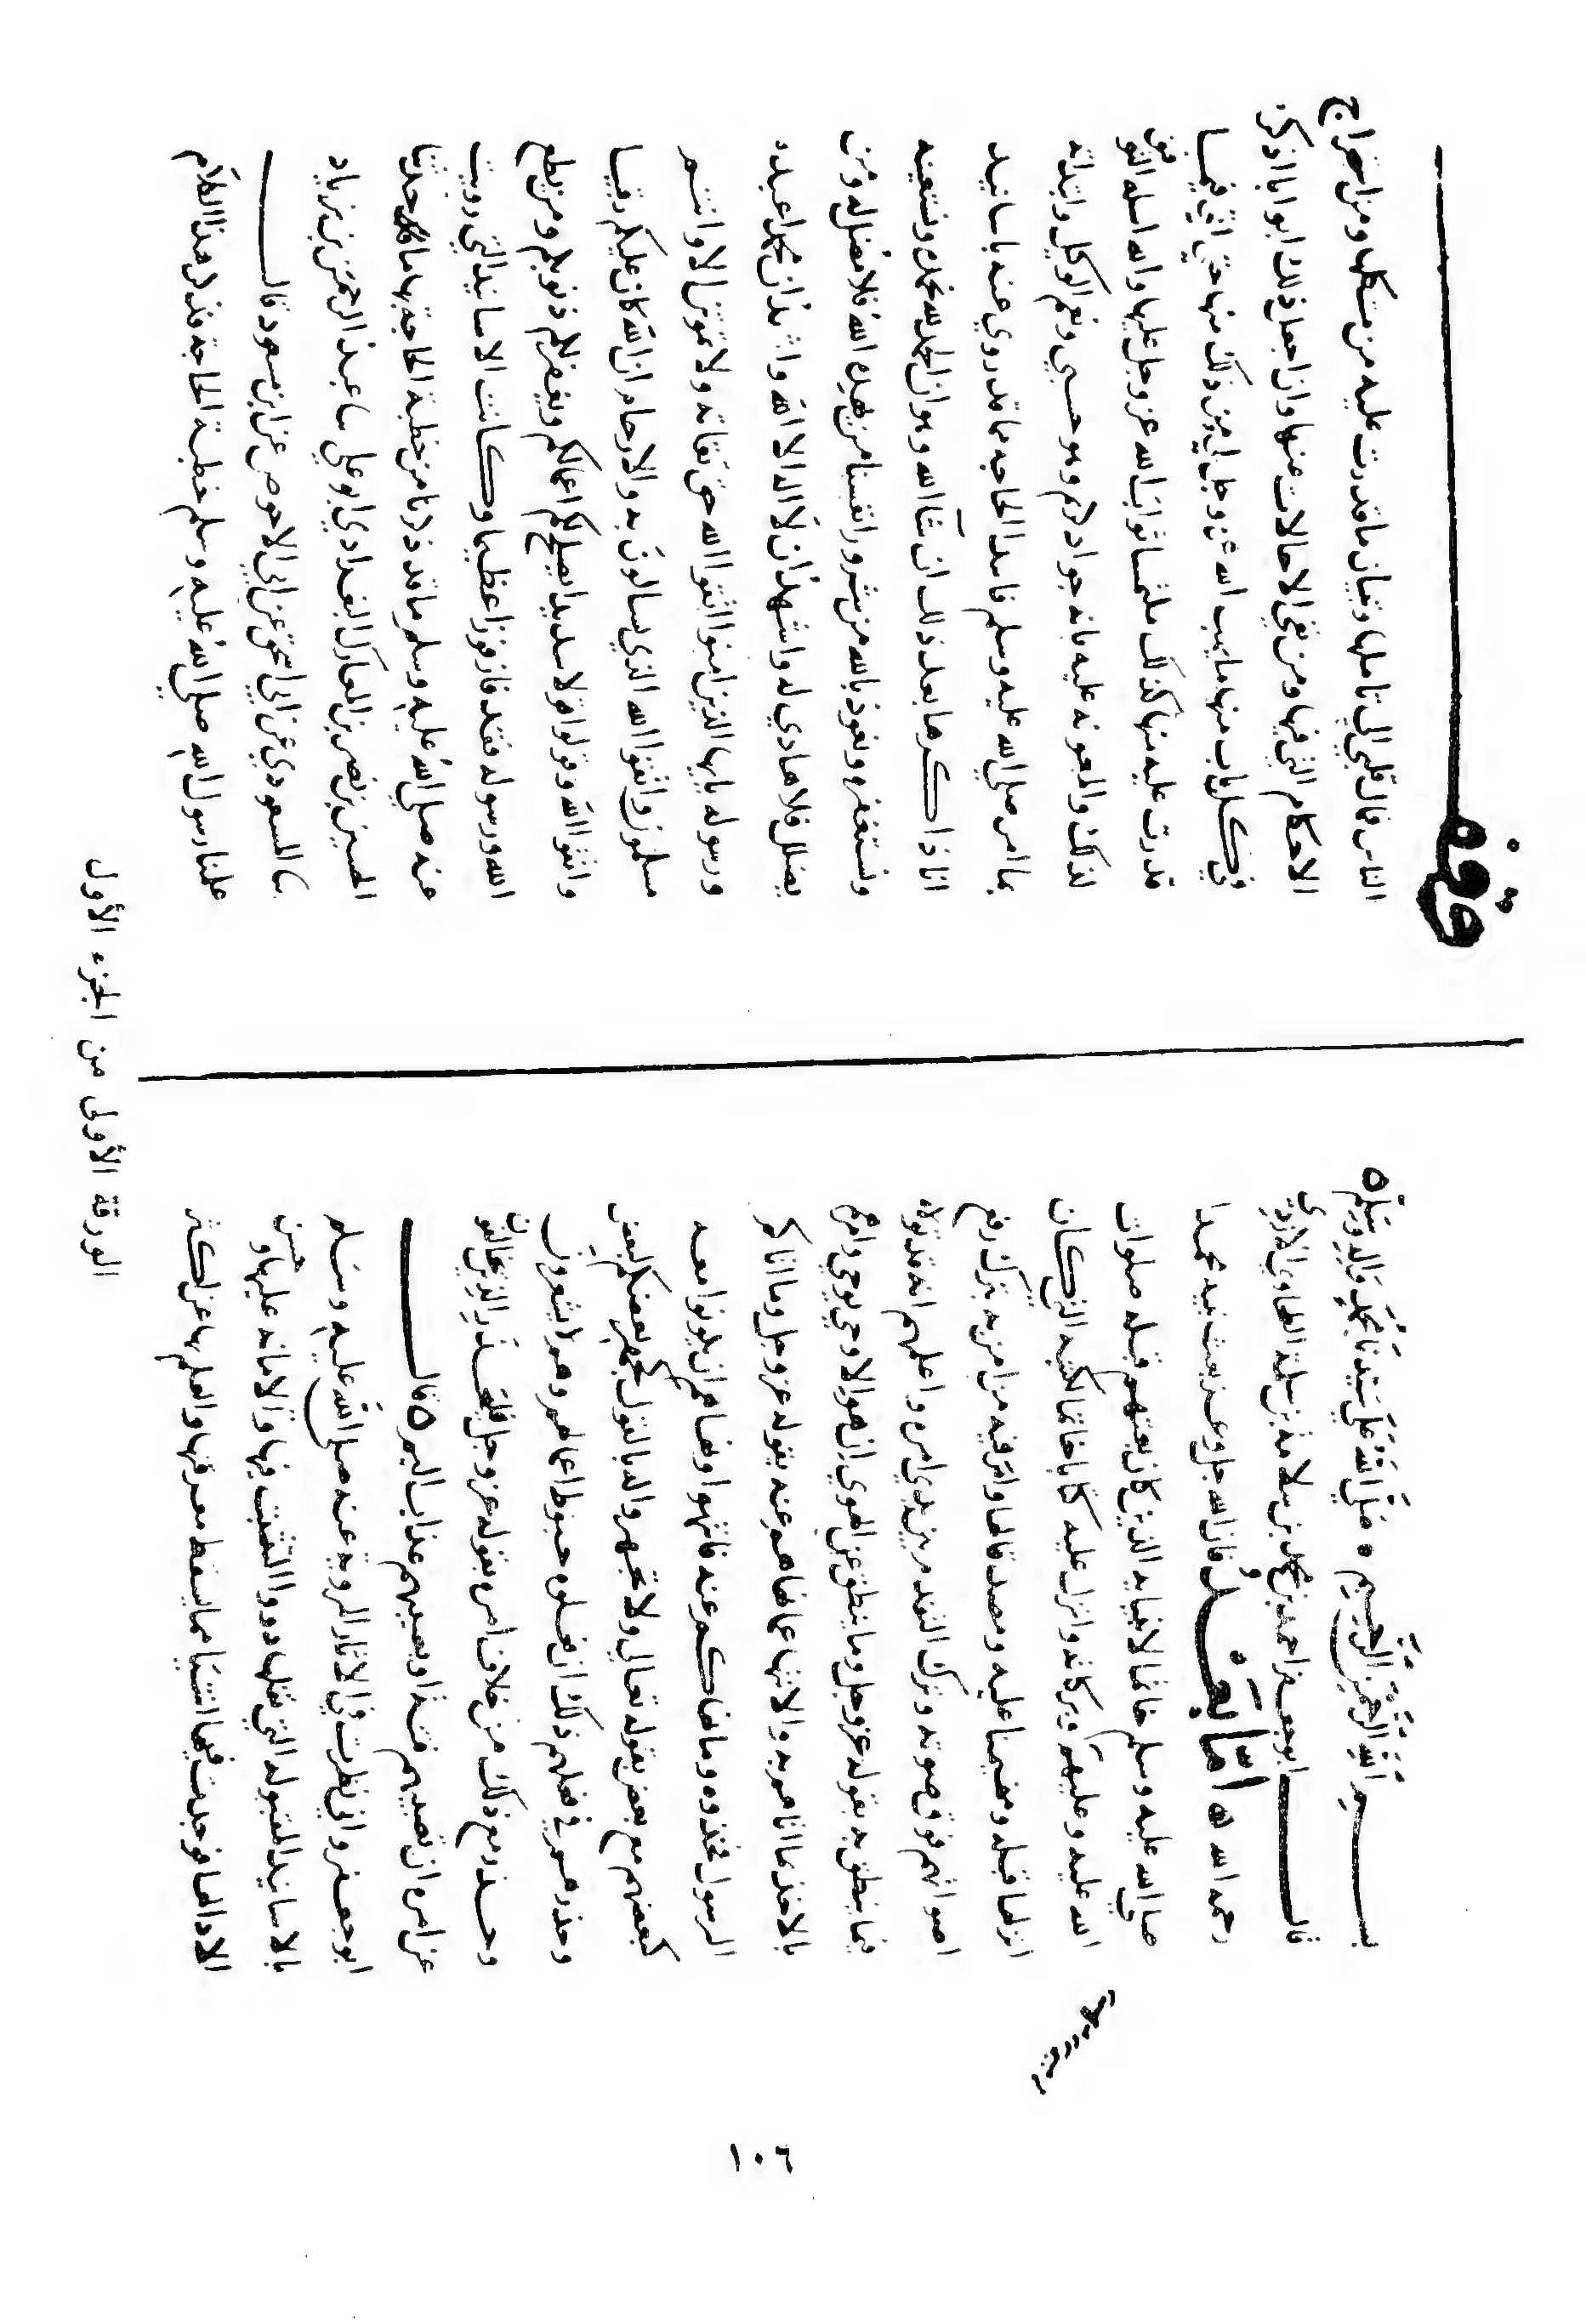 بسم الله الرحمن الرحيم ه صلى الله على سيدنا محمد واله وسلم ه
قال ابو جعفر احمد بن محمد بن سلامة بن سلمة الطحاوي الازدي
رحمه الله ه اما بعد فان الله جل وعز بعث نبيه محمدا
صلي الله عليه وسلم خاتما لانبيايه الذين كان بعثهم قبله صلوات
الله عليه وعليهم وبركاته وانزل عليه كتابا خاتما لكتبه التي كان
انزلها قبله ومهيمنا عليه ومصدقا لها وامر فيه من امن به بترك رفع
اصواتهم فوق صوته وترك التقدم بين يدي امره واعلمهم انه قد تولاه
فيما ينطق به بقوله عز وجل وما ينطق عن الهوي ان هو الا وحي يوحي وامرهم
بالاخذ بما اتاهم به والانتها عما نهاهم عنه بقوله عز وجل وما اتاكم
الرسول فخذوه وما نهاكم عنه فانتهوا ونهاهم ان يكونوا معه
كبعضهم مع بعض بقوله تعالي ولا تجهروا له بالقول كجهر بعضكم لبعض
وحذرهم في فعلهم ذلك ان فعلوه حبوط اعمالهم وهم لا يشعرون
وحذر مع ذلك من خلاف امره بقوله عز وجل فليحذر الذين يخالفون
عن امره ان تصيبهم فتنة او يصيبهم عذاب اليم ه قال
ابو جعفر واني نظرت في الاثار المروية عنه صلى الله عليه وسلم
بالاسانيد المقبولة التي نقلها ذوو التثبت فيها والامانة عليها وحسن
الاداء لها فوجدت فيها اشيا مما يسقط معرفتها والعلم بما فيها عن اكثر
وقف
الناس فمال قلبي الي تاملها وتبيان ما قدرت عليه من مشكلها ومن استخراج
الاحكام التي فيها ومن نفي الاحالات عنها وان اجعل ذلك ابوابا اذكر
في كل باب منها ما يهب الله عز وجل لي من ذلك منها حتي اتي فيما
قدرت عليه منها كذلك ملتمسا ثواب الله عز وجل عليها والله اسله التوفيق
لذلك والمعونة عليه بانه جواد كريم وهو حسبي ونعم الوكيل وابتداته
بما امر صلي الله عليه وسلم بابتدا الحاجة به مما قد روي عنه باسانيد
انا ذاكرها بعد ذلك ان شا الله وهو ان الحمد لله نحمده ونستعينه
ونستغفره ونعوذ بالله من شرور انفسنا من يهده الله فلا مضل له ومن
يضلل فلا هادي له واشهد ان لا اله الا الله واشهد ان محمدا عبده
ورسوله يايها الذين امنوا اتقوا الله حق تقاته ولا تموتن الا وانتم
مسلمون واتقوا الله الذي تسالون به والارحام ان الله كان عليكم رقيبا
واتقوا الله وقولوا قولا سديدا يصلح لكم اعمالكم ويغفر لكم ذنوبكم ومن يطع
الله ورسوله فقد فاز فوزا عظيما وكانت الاسانيد التي رويت
عنه صلي الله عليه وسلم ما قد ذكرنا من خطبة الحاجة بها ما قد حدثنا
الحسين بن نصر بن المعارك البغدادي ابو علي سا عبد الرحمن بن زياد
سا المسعودي عن ابي اسحق عن ابي الاحوص عن ابن مسعود قال
علمنا رسول الله صلي الله عليه وسلم خطبة الحاجة فذكر هذا الكلام
الورقة الأولى من الجزء الأول
١٠٦